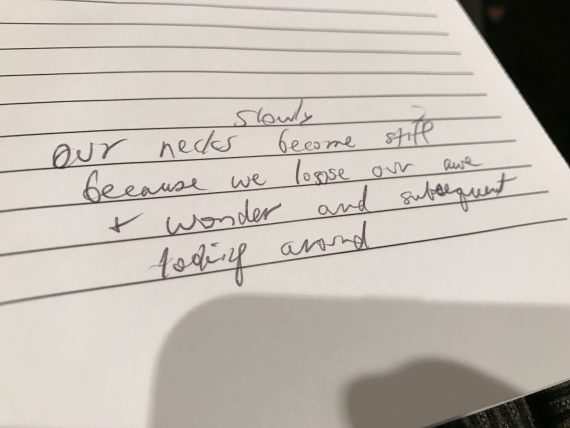 slowly
our necks become stiff ?
because we loose our awe
+ wonder and subsequent
looking around